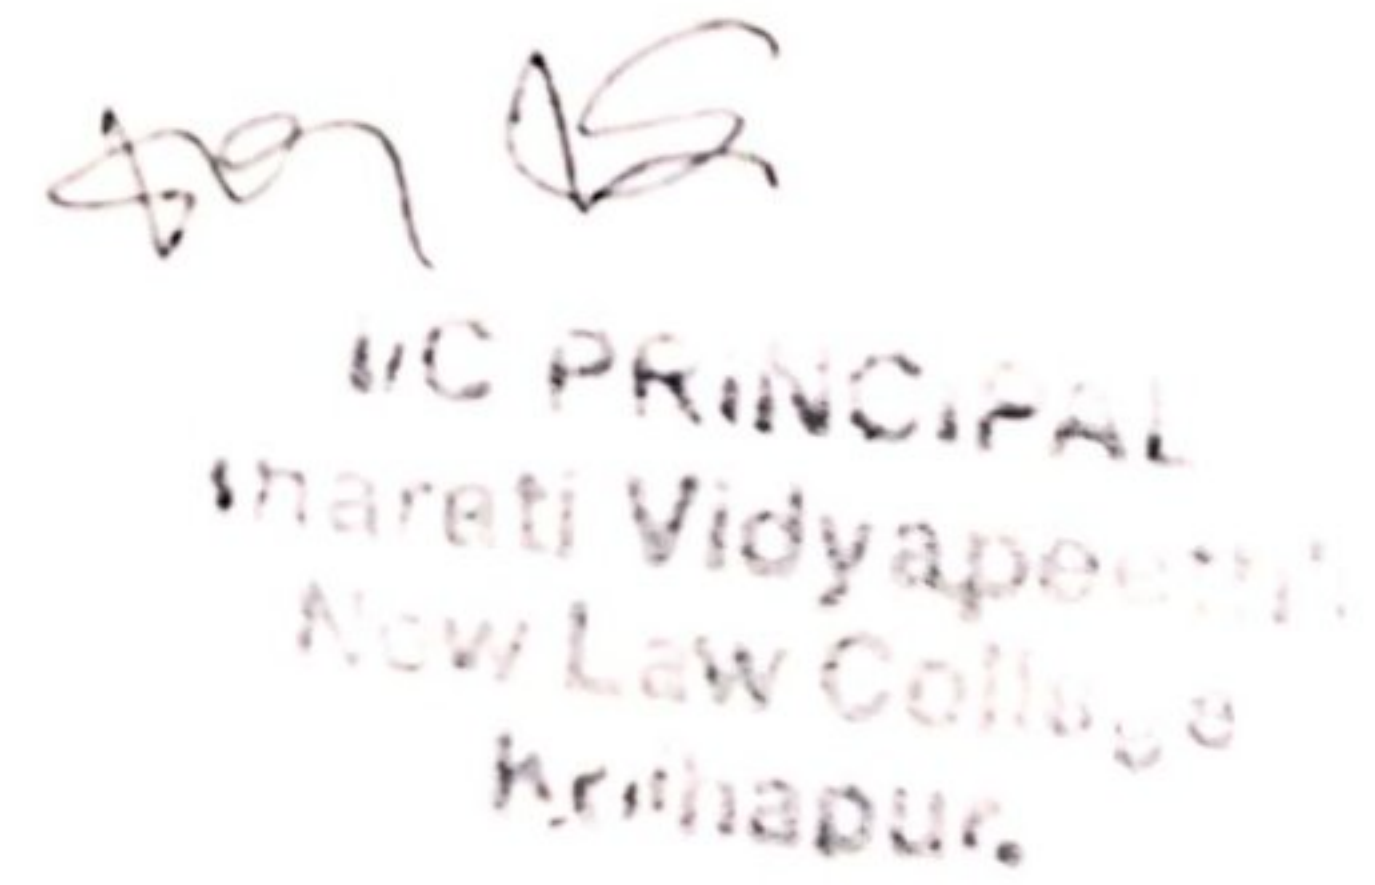 I/C PRINCIPAL
Bharati Vidyapeeth's
New Law College
Kolhapur.